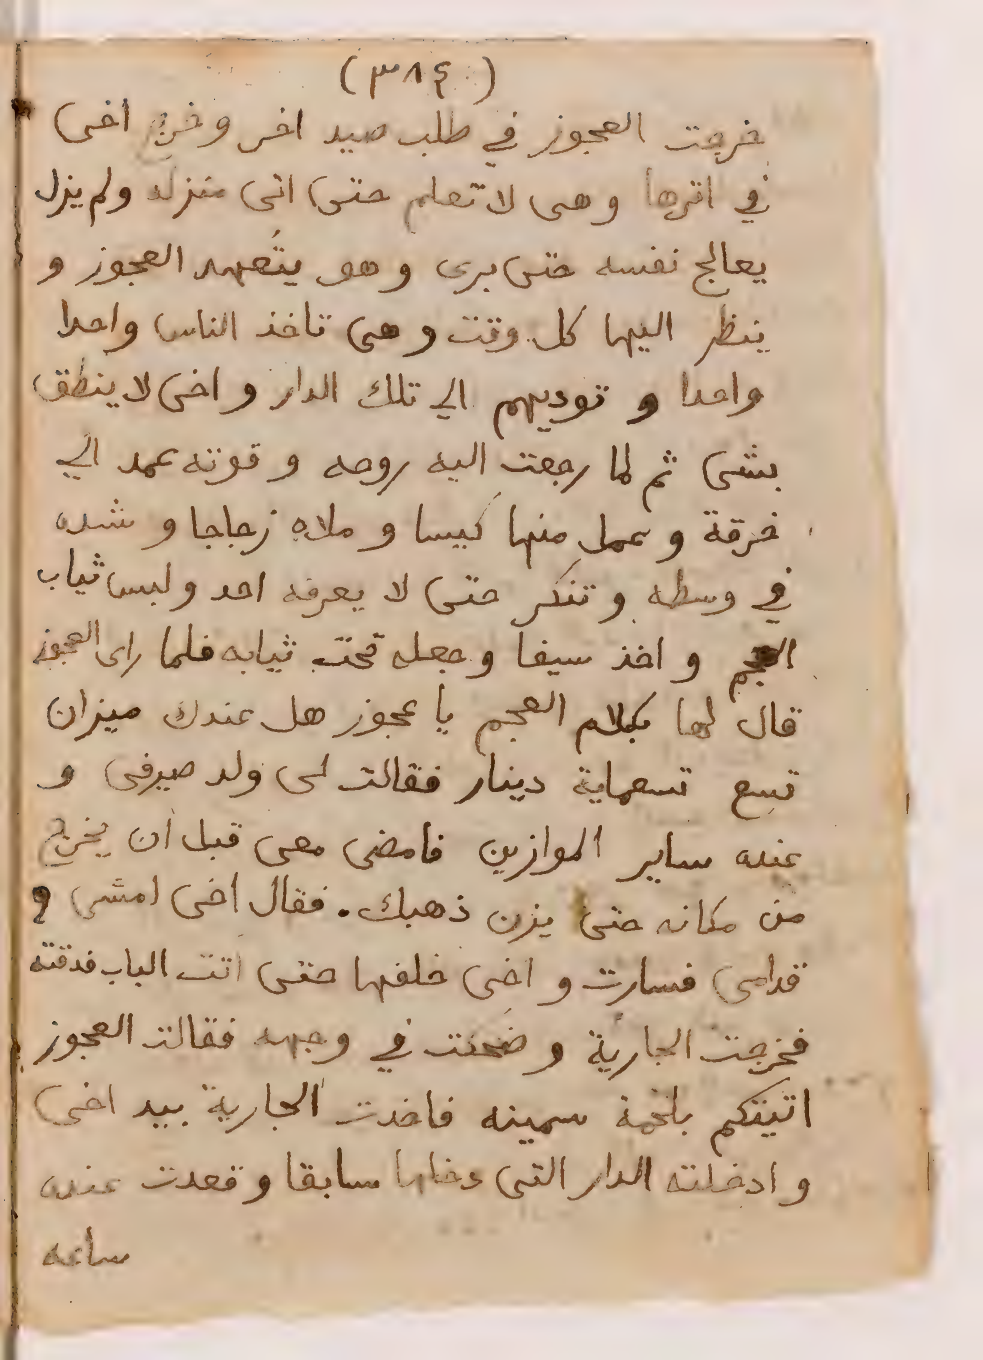 (٣٨٤)
خرجت العجوز في طلب صيد اخر وخرج اخى
في اثرها وهى لا تعلم حتى اتى منزله ولم يزل
يعالج نفسه حتى برى وهو يتعهد العجوز و
ينظر اليها كل وقت وهى تاخذ الناس واحدا
واحدا و توديهم الي تلك الدار واخى لا ينطق
بشى ثم لما رجعت اليه روحه وقوته عمد الي
خرقة وعمل منها كيسا و ملاه زجاجا وشده
في وسطه وتنكر حتى لا يعرفه احد ولبس ثياب
العجم و اخذ سيفا وجعله تحت ثيابه فلما راى العجوز
قال لها بكلام العجم يا عجوز هل عندك ميزان
تسع تسعماية دينار فقالت لى ولد صيرفى و
عنده ساير الموازين فامضى معى قبل ان يخرج
من مكانه حتى يزن ذهبك. فقال اخى امشى
قدامى فسارت و اخى خلفها حتى اتت الباب فدقته
فخرجت الجارية وضحكت في وجهه فقالت العجوز
اتيتكم بلخمة سمينه فاخدت الجارية بيد اخى
و ادخلته الدار التى دخلها سابقا وقعدت عنده
ساعه